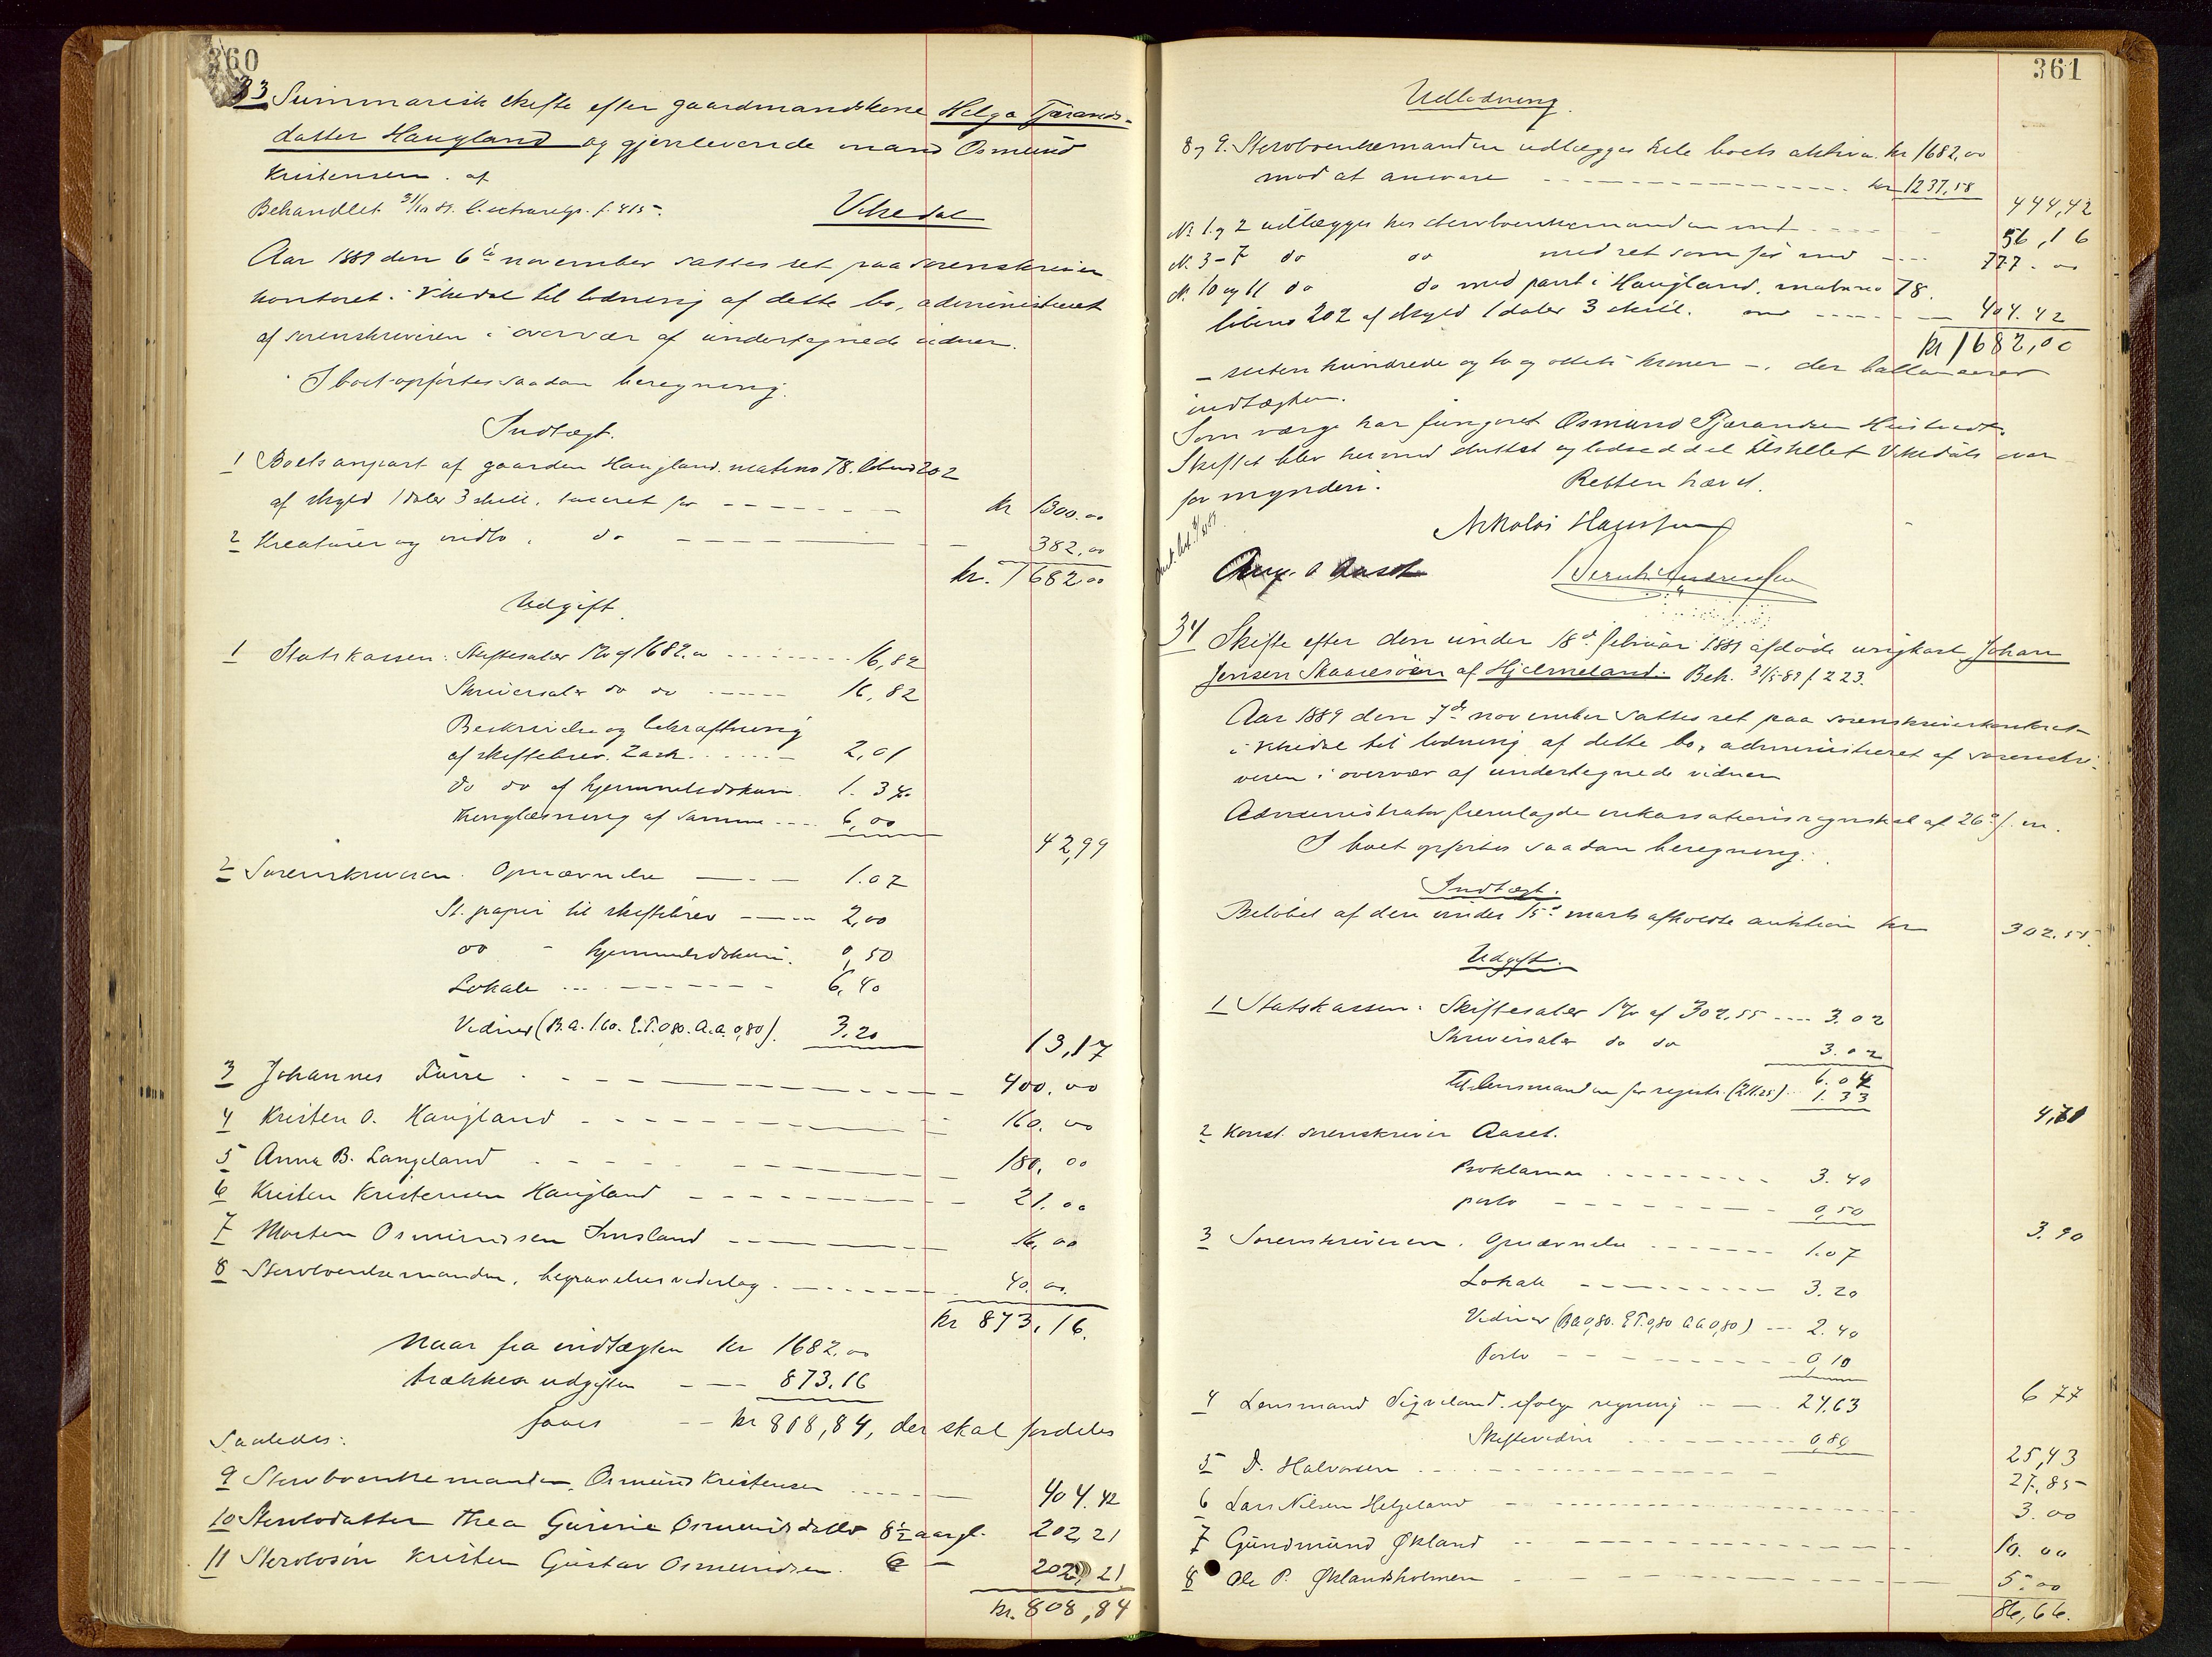 360
33 Summarisk skifte efter gaardmandskone Helga Tjærands-
datter Haugland og gjenlevende mand Osmund
Kristensen af
Behandlet 31/10 89. f. 415.
Vikedal
Aar 1889 den 6te november sattes ret paa sorenskriver
kontoret i Vikedal til lodning af dette bo, administreret
af sorenskriveren i overvær af undertegnede vidner.
I boet opførtes saadan beregning.
Indtægt.
1 Boets anpart af gaarden Haugland matrno 78. løbeno 202
af skyld 1 daler 3 skill. taxeret for - - - kr 1300.00
2 Kreaturer og indbo, do - - - 382.00
kr. 1682.00
Udgift.
1 Statskassen: Skiftesaler 1% af 1682.00 - - - 16,82
Skriversaler do do - - - 16,82
Beskrivelse og bekræftning
af skiftebrev. 2 ark. - - - 2,01
do do af hjemmelsdokum. 1.34
Thinglæsning af samme - - - 6,00
42,99
2 Sorenskriveren. Opnævnelse - - - 1.07
St. papir til skiftebrev - - - 2,00
do - hjemmelsdokum. 0,50
Lokale - - - 6,40
Vidner (B.A. 1.60. E.T. 0,80. A.A. 0,80). 3.20
13,17
3 Johannes Furre - - - 400.00
4 Kristen O. Haugland - - - 160.00
5 Anna B. Langeland - - - 180,00
6 Kristen Kristensen Haugland - - - 21.00
7 Morten Osmundsen Imsland - - - 16,00
8 Stervboenkemanden, begravelsesvederlag - - - 40.00
kr 873,16.
Naar fra indtægten kr 1682.00
trækkes udgiften - - - 873.16
faaes - - kr 808,84, der skal fordeles
Saaledes:
9 Stervboenkemanden, Osmund Kristensen - - - 404.42
10 Stervbodatter Thea Gurine Osmundsdatter 8½ aar gl. 202,21
11 Stervbosøn Kristen Gustav Osmundsen. 6 - 202,21
kr. 808,84
361
Udlodning.
8 og 9. Stervboenkemanden udlægges hele boets aktiva. kr 1682,00
mod at ansvare - - - kr 1237,58
444,42
No 1 og 2 udlægges hos stervboenkemanden med - - - 56,16
No. 3-7 do do med ret som før med - - - 777.00
No. 10 og 11 do do med pant i Haugland, matrno 78.
løbeno 202 af skyld 1 daler 3 skill. med - - - 404.42
kr 1682,00
- sexten hundrede og to og otteti kroner -, der ballancerer
indtægten.
Som værge har fungeret Osmund Tjærandsen
Skiftet blev hermed sluttet og lodseddel tilstillet Vikedals over
formynderi. Retten hævet.
Nikolai Haussen
Aug. A Aaset
Bernh. Andreassen
34 Skifte efter den under 18de februar 1889 afdøde ungkarl Johan
Jensen Skaaresøen af Hjelmeland. Beh. 31/5-89 f. 223.
Aar 1889 den 7de november sattes ret paa sorenskriverkontoret
i Vikedal til lodning af dette bo, administreret af sorenskri-
veren i overvær af undertegnede vidner
Administrator fremlagde inkassationsregnskab af 26de f. m.
I boet opførtes saadan beregning:
Indtægt.
Beløbet af den under 15de marts afholdte auktion kr 302.55.
Udgift.
1 Statskassen: Skiftesaler 1% af 302,55 - - - 3.02
Skriversaler do do 3.02
6.04
til lensmanden for registr. (2/11.25). 1.33
4,71
2 Konst. sorenskriver Aaset.
Proklama - - - 3.40
porto - - - 0,50
3.90
3 Sorenskriveren. Opnævnelse - - - 1.07
Lokale - - - 3.20
Vidner (BA 0,80. E.T. 0,80 AA 0,80) - - 2.40
Porto - - - 0,10
6 77
4 Lensmand Sigveland ifølge regning - - - 24,63
Skiftevidner - - - 0,80
25,43
5 D. Halvorsen - - - 27,85
6 Lars Nilsen Helgeland - - - 3.00
7 Gundmund Økland - - - 10.00
8 Ole P. Øklandsholmen - - - 5.00
86,66.